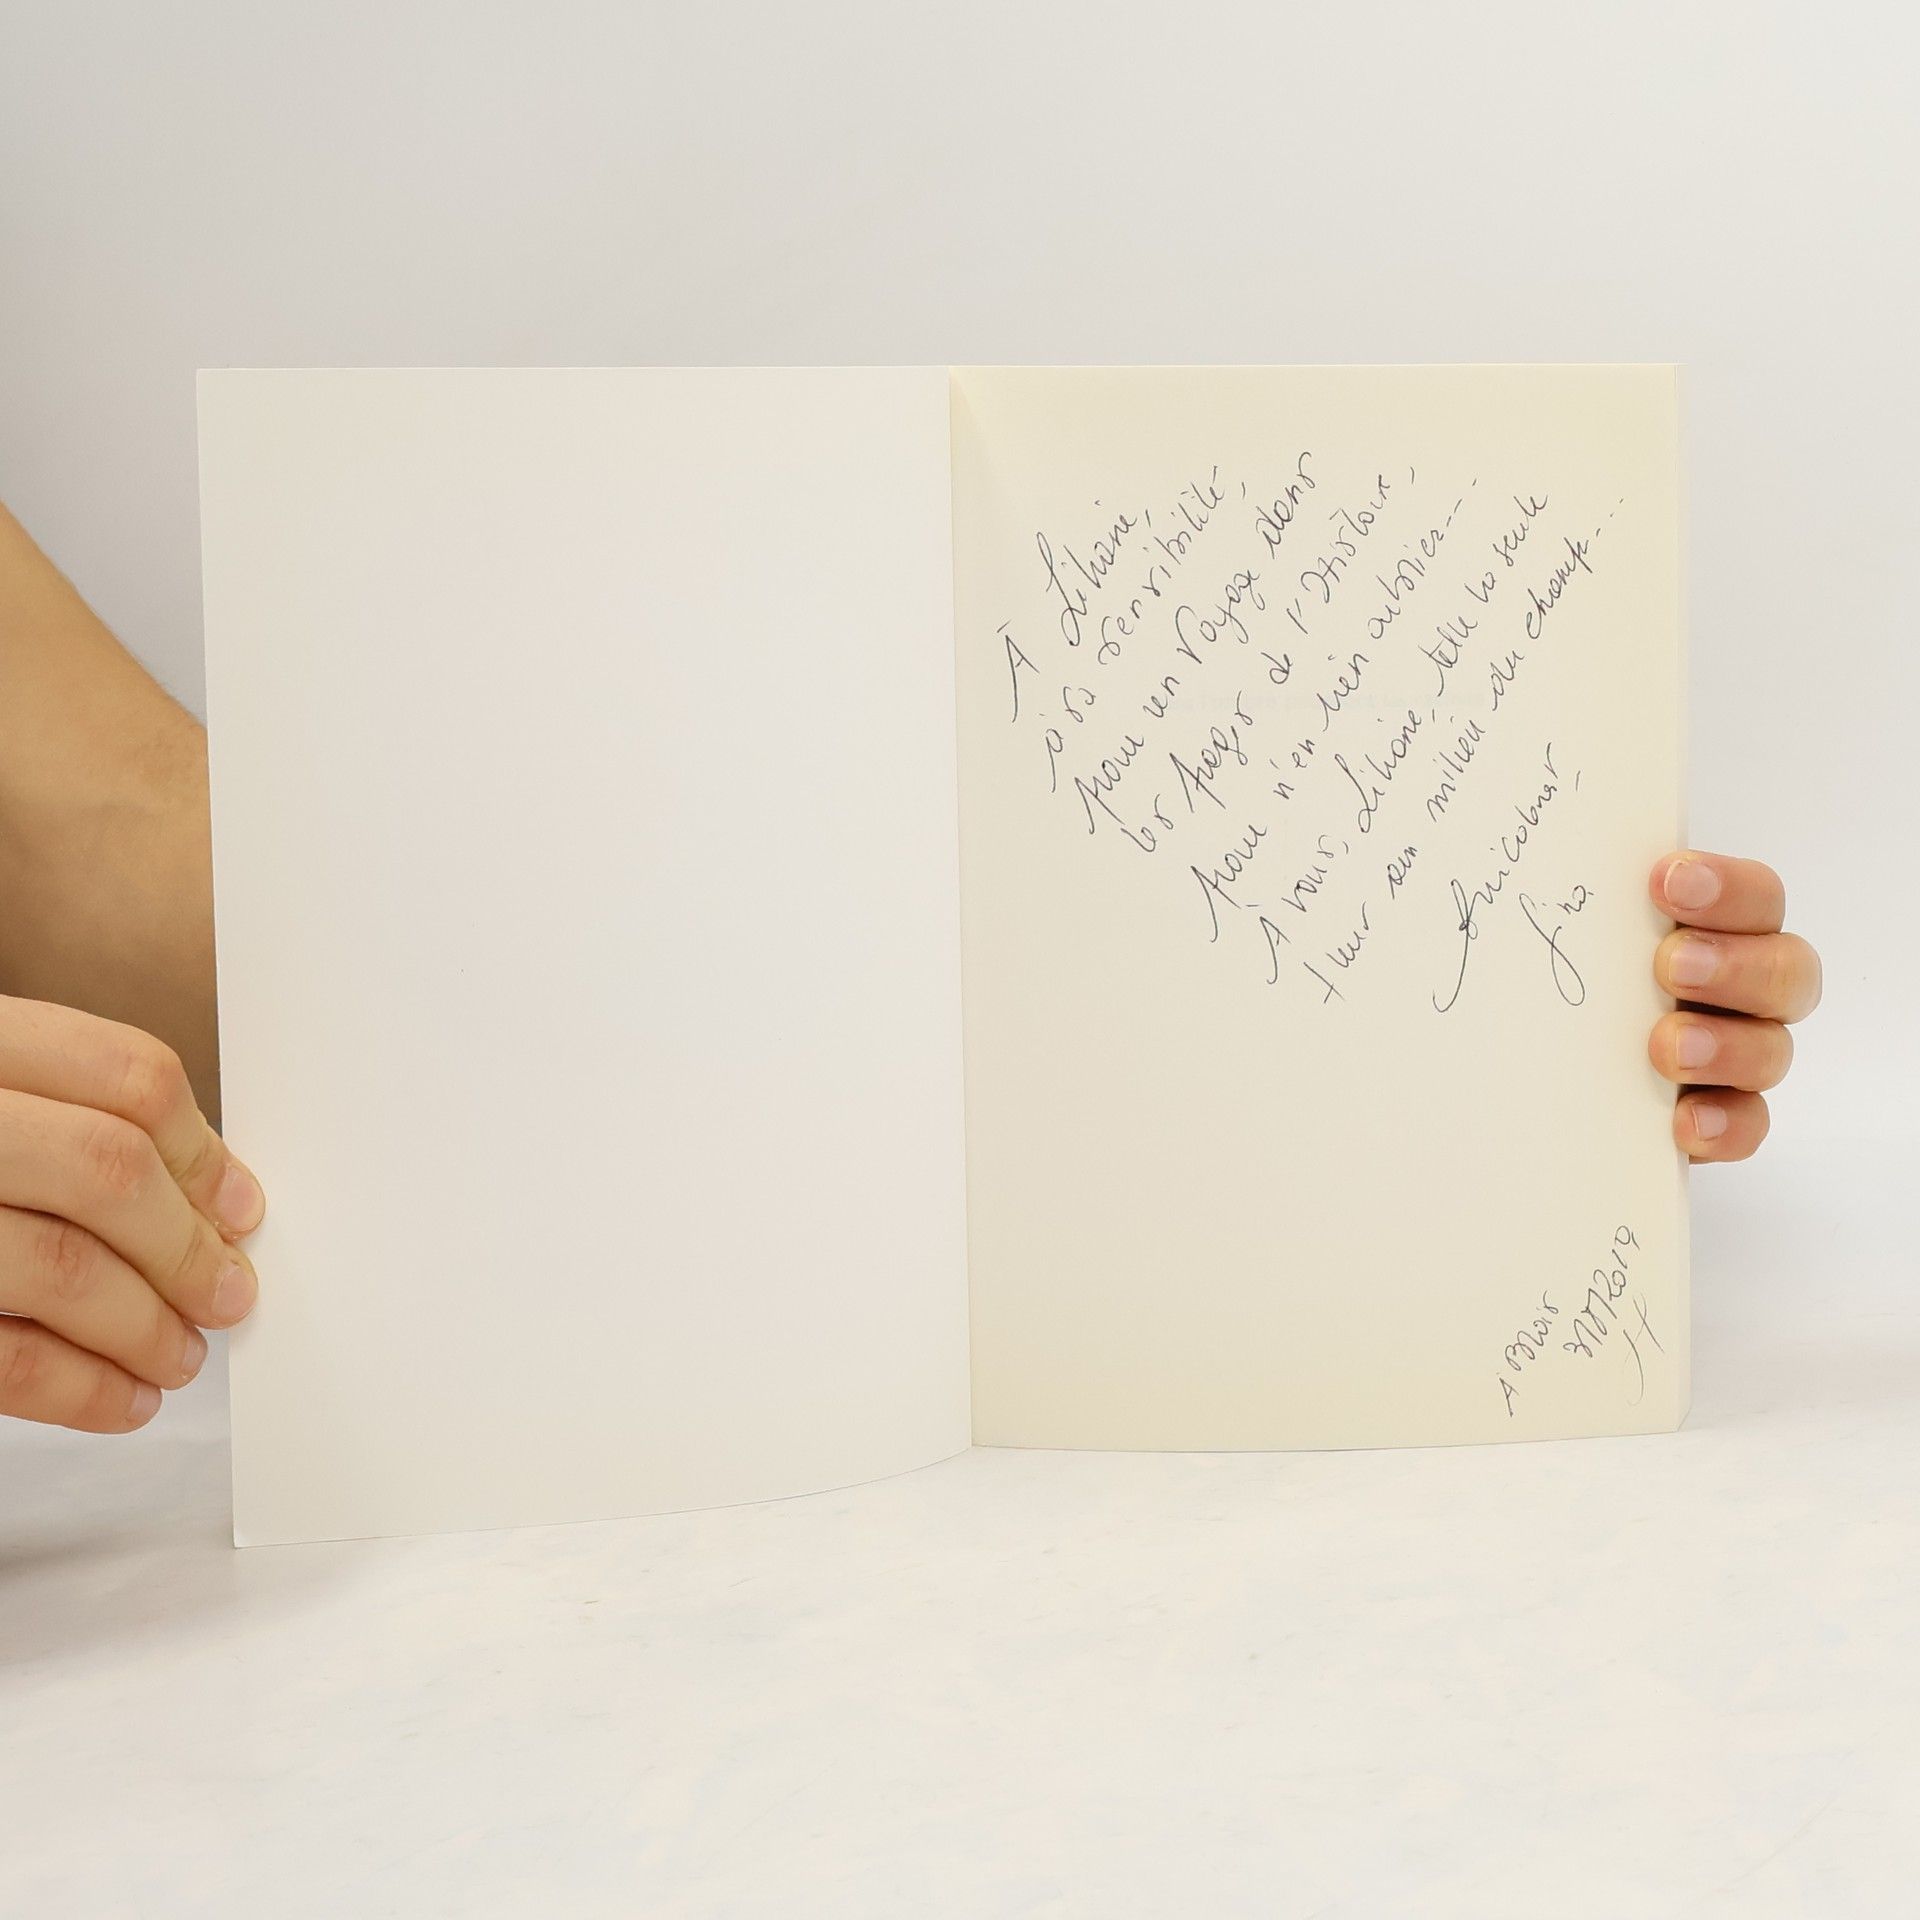 À Liliane,
à sa sensibilité,
pour un voyage dans
les pages de l'Histoire,
pour n'en rien oublier...
À vous, Liliane, telle la seule
fleur au milieu du champ...
Amicalement
À Blois